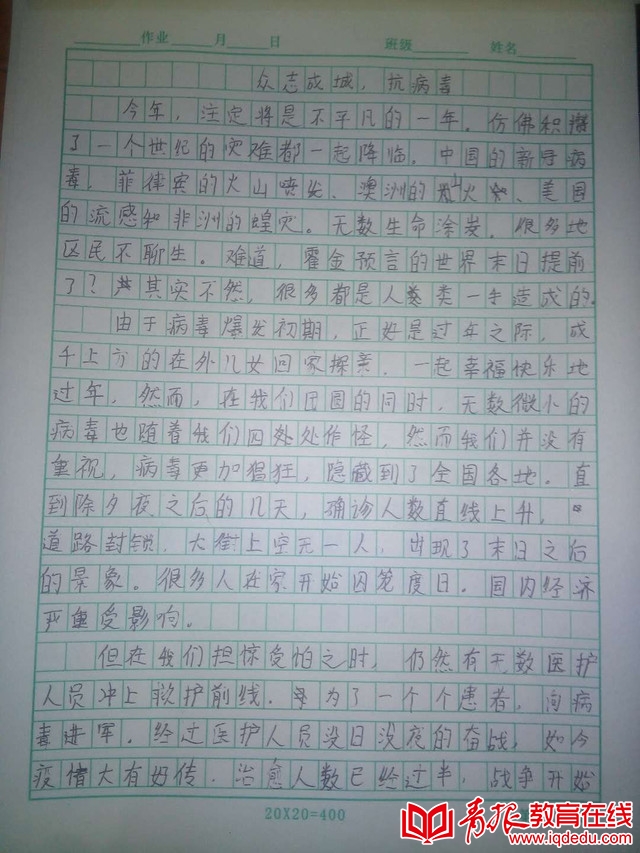 作业 月 日 班级 姓名
众志成城，抗病毒
今年，注定将是不平凡的一年。仿佛积攒
了一个世纪的灾难都一起降临。中国的新冠病
毒、菲律宾的火山喷发、澳洲的山火、美国
的流感和非洲的蝗灾。无数生命涂炭。很多地
区民不聊生。难道，霍金预言的世界末日提前
了？其实不然，很多都是人类一手造成的。
由于病毒爆发初期，正好是过年之际，成
千上万的在外儿女回家探亲。一起幸福快乐地
过年，然而，在我们团圆的同时，无数微小的
病毒也随着我们四处处作怪，然而我们并没有
重视，病毒更加猖狂，隐藏到了全国各地。直
到除夕夜之后的几天，确诊人数直线上升，
道路封锁，大街上空无一人，出现了末日之后
的景象。很多人在家开始囚笼度日。国内经济
严重受影响。
但在我们担惊受怕之时，仍然有无数医护
人员冲上救护前线。为了一个个患者，向病
毒进军。经过医护人员没日没夜的奋战，如今
疫情大有好传，治愈人数已经过半，战争开始
20X20=400
青报教育在线
www.iqdedu.com